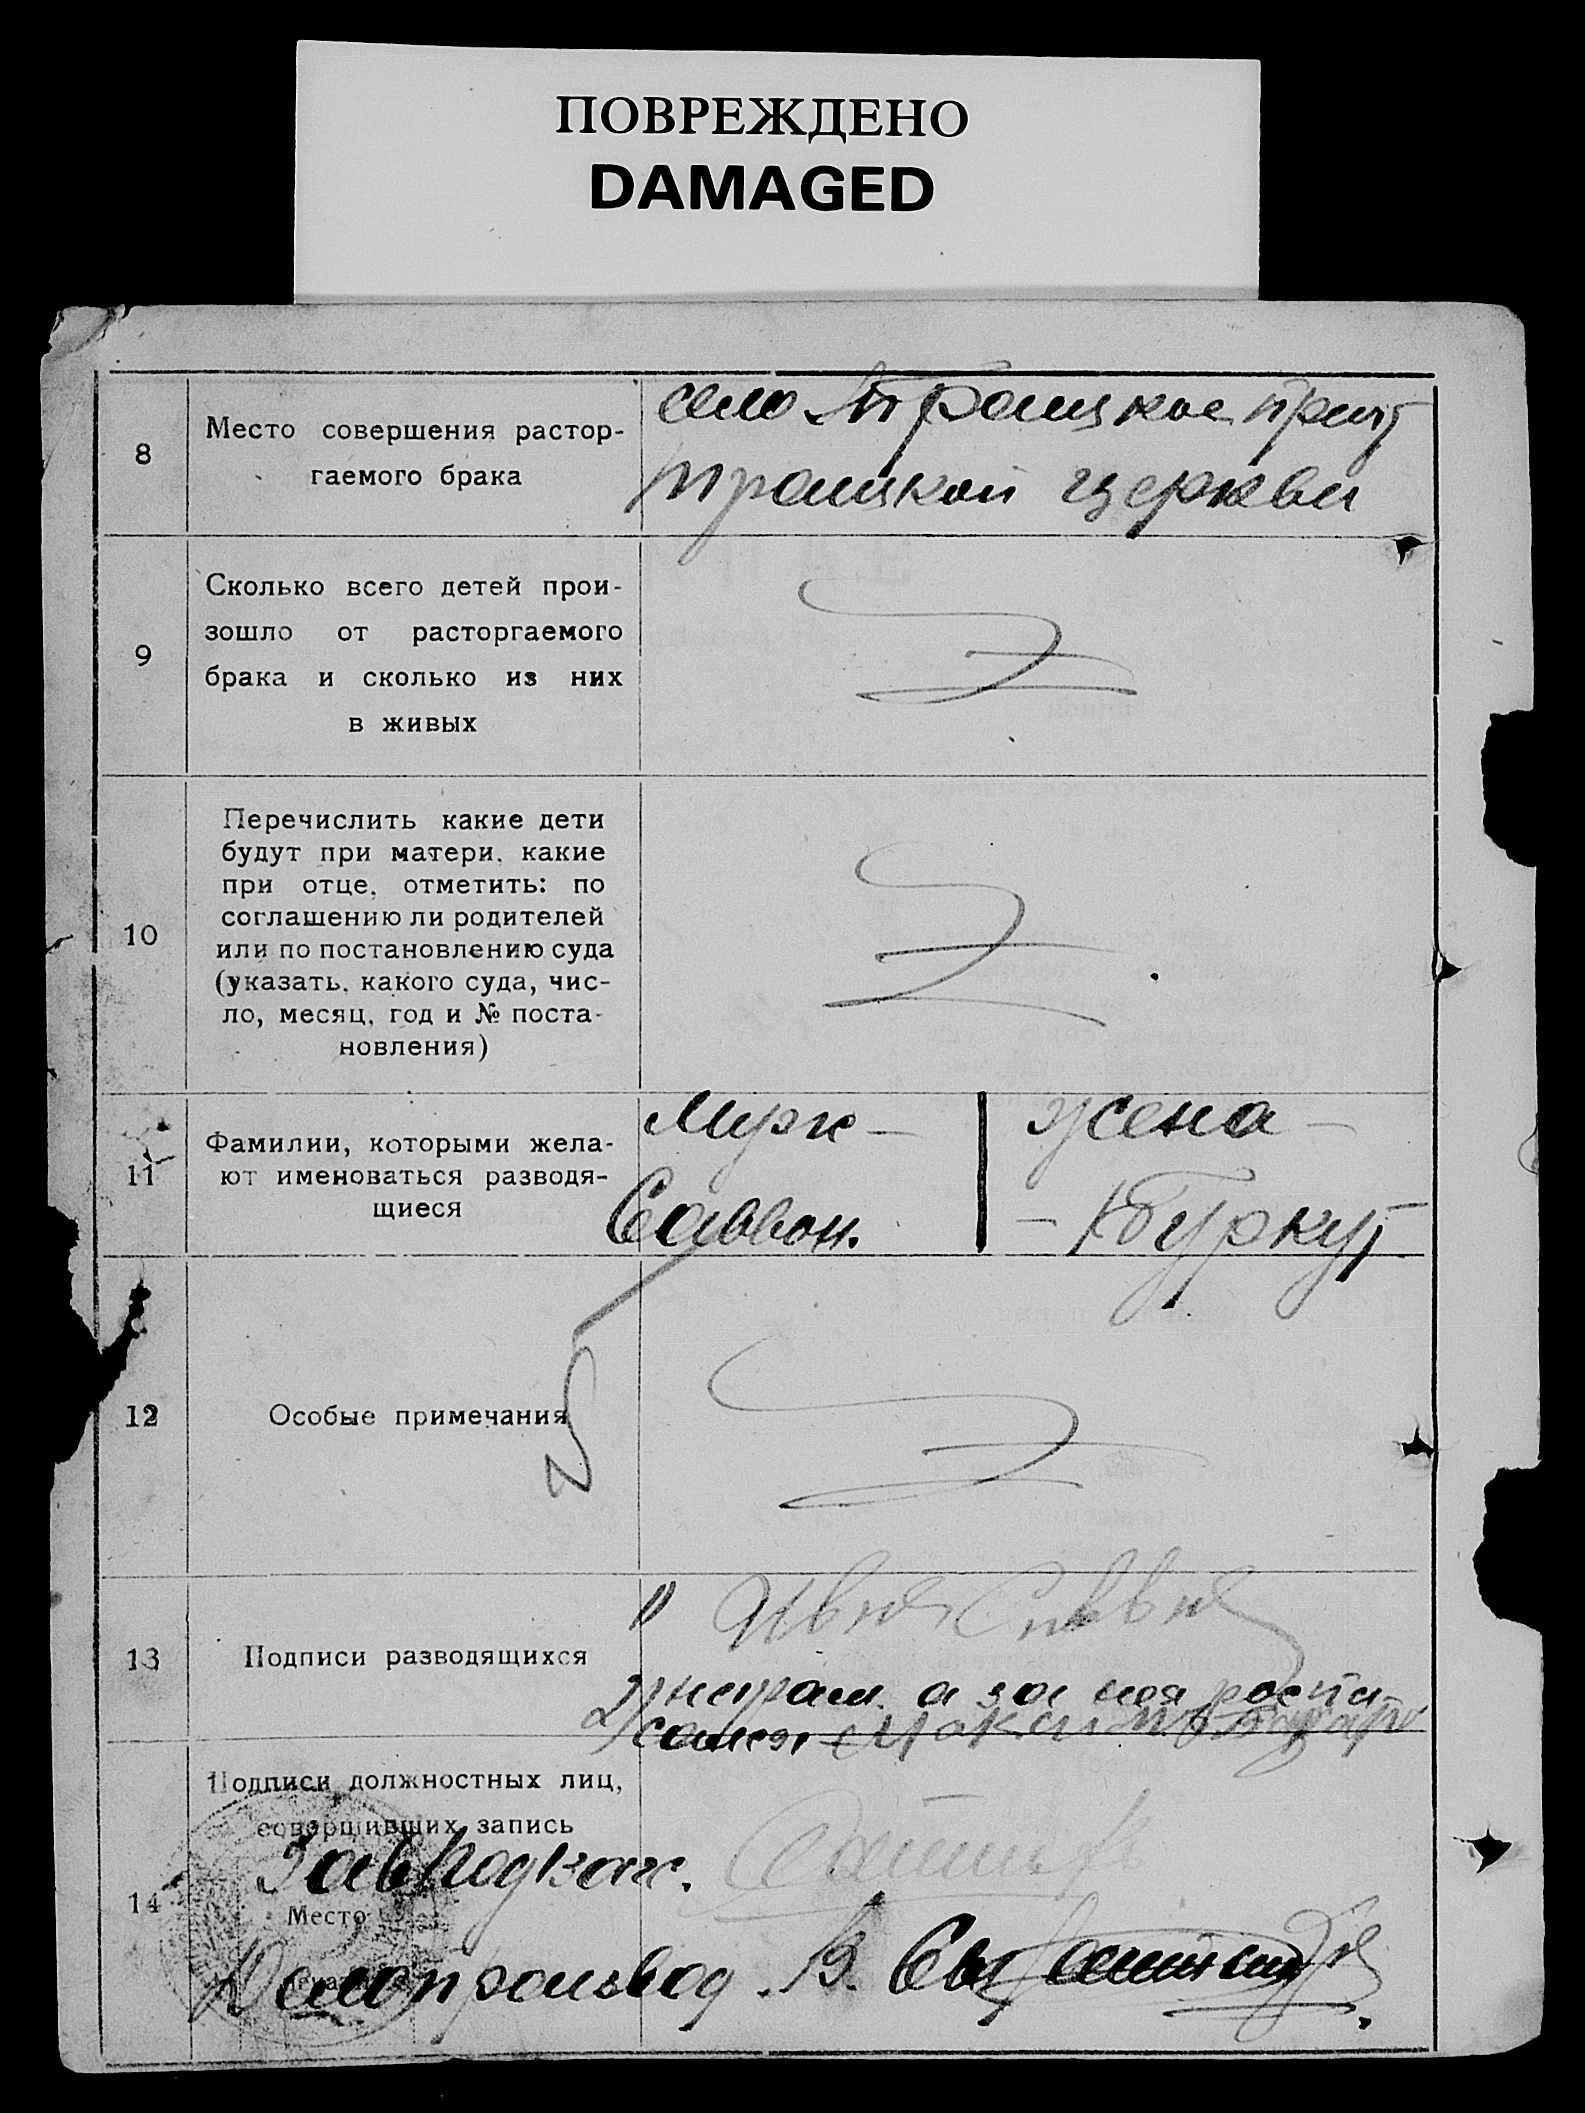 ПОВРЕЖДЕНО
DAMAGED
8
Место совершения растор-
гаемого брака
село Троицкое причт
троицкой церкви
9
Сколько всего детей прои-
зошло от расторгаемого
брака и сколько из них
в живых
10
Перечислить какие дети
будут при матери, какие
при отце, отметить: по
соглашению ли родителей
или по постановлению суда
(указать, какого суда, чис-
ло, месяц, год и № поста-
новления)
11
Фамилии, которыми жела-
ют именоваться разводя-
щиеся
Муж — жена —
Саввон. — Буркут
12
Особые примечания
13
Подписи разводящихся
1)
2) неграм. а за нея роспи
14
Подписи должностных лиц,
совершивших запись
Завподзаг.
Место
печати
Делопроизвод. В.